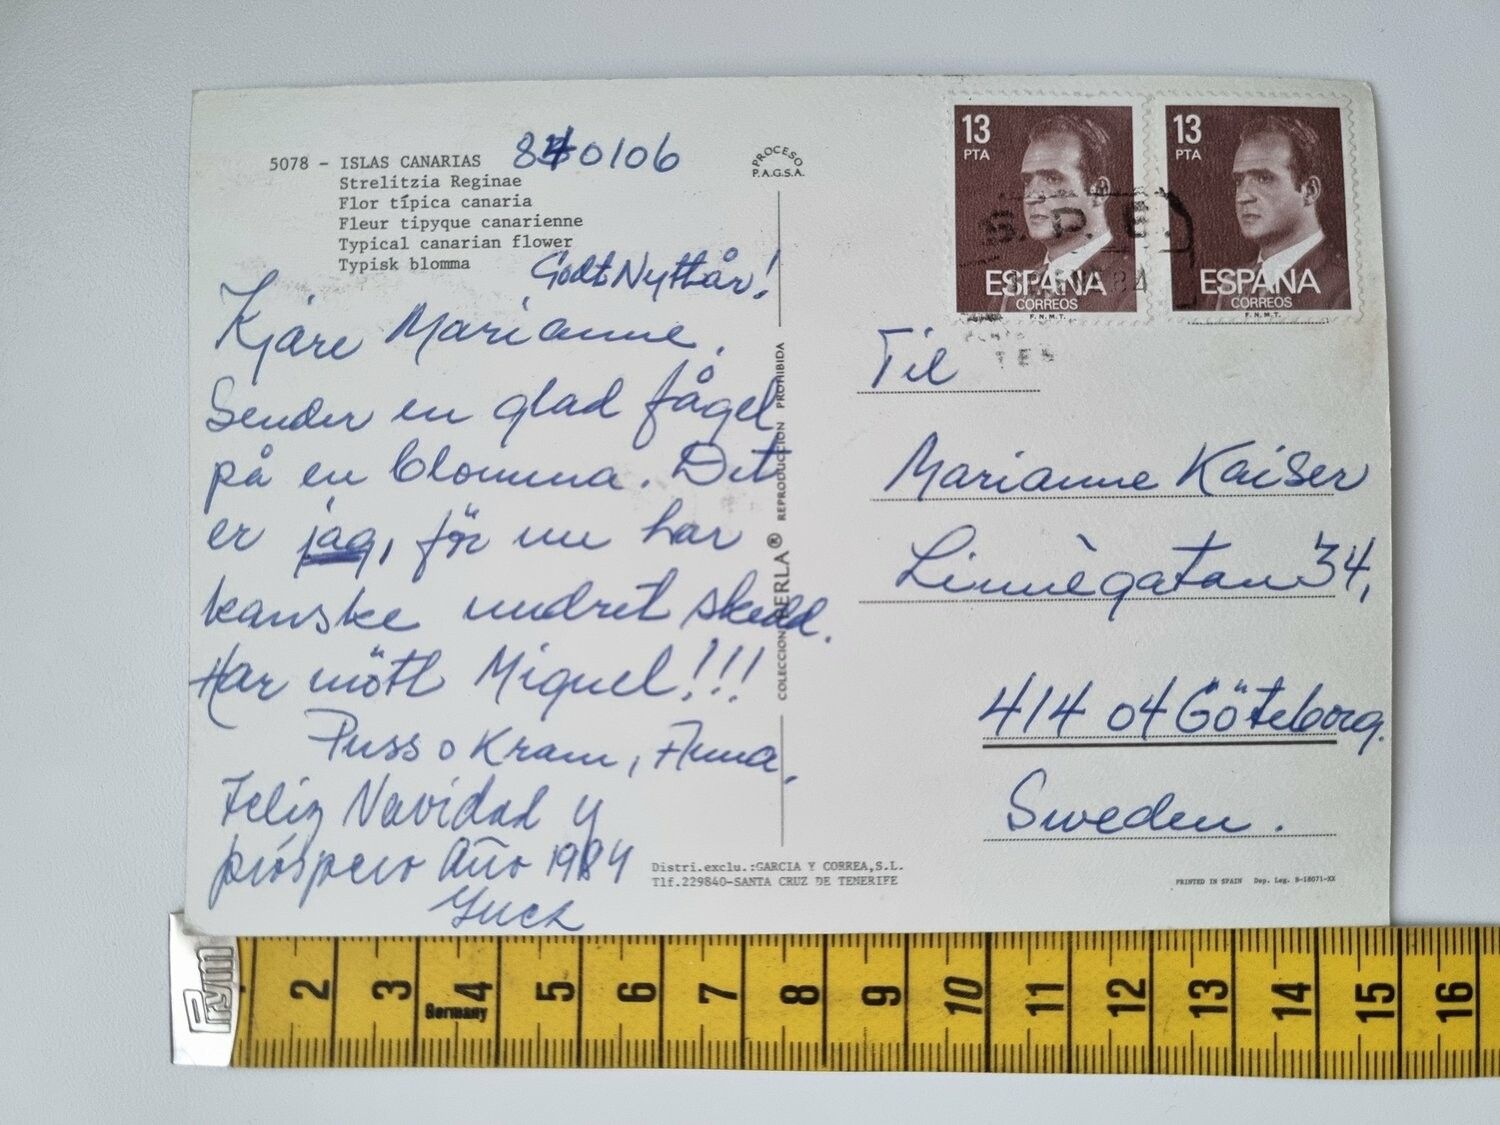 5078 - ISLAS CANARIAS 840106
Strelitzia Reginae
Flor típica canaria
Fleur tipyque canarienne
Typical canarian flower
Typisk blomma
Godt Nyttår!
Kjäre Marianne,
Sender en glad fågel
på en blomma. Det
er jag, för nu har
kanske undret skedd.
Har mött Miguel!!!
Puss o Kram, Anna.
Feliz Navidad y
próspero Año 1984
PROCESO
P.A.G.S.A.
COLECCION PERLA® REPRODUCCION PROHIBIDA
Distri.exclu.:GARCIA Y CORREA,S.L.
Tlf.229840-SANTA CRUZ DE TENERIFE
13
PTA
ESPAÑA
CORREOS
F.N.M.T.
13
PTA
ESPAÑA
CORREOS
F.N.M.T.
S.P.E.
84
Til
Marianne Kaiser
Linnègatan 34,
414 04 Göteborg.
Sweden.
PRINTED IN SPAIN Dep. Leg. B-18071-XX
Prym
2 3 4 5 6 7 8 9 10 11 12 13 14 15 16
Germany